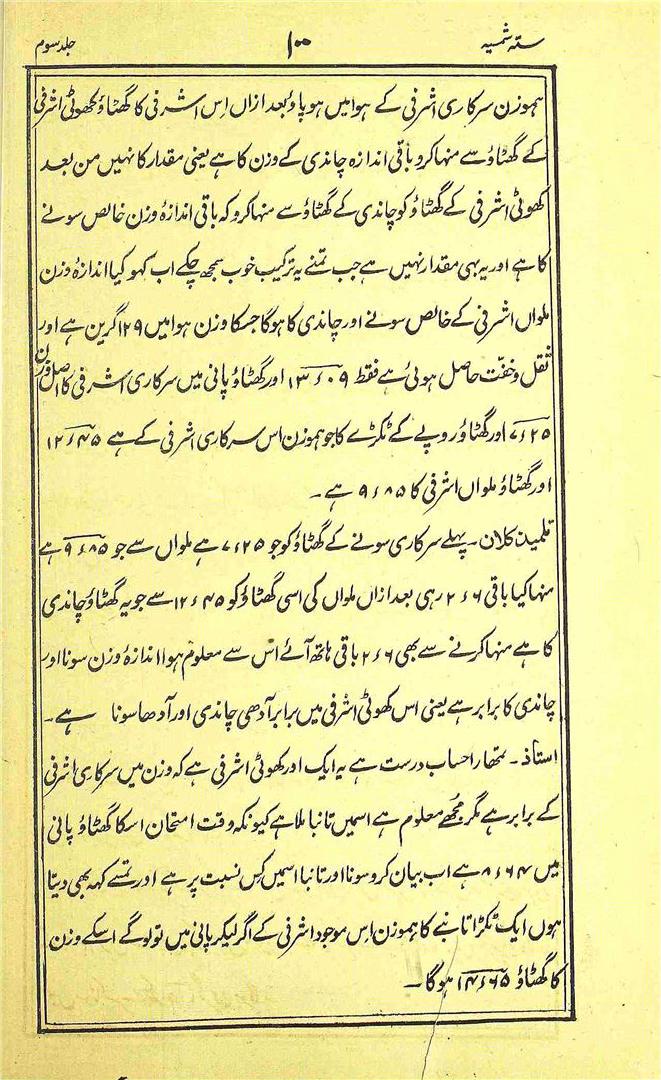 ستہ شمسیہ ۱۰۰ جلد سوم
ہموزن سرکاری اشرفی کے ہوا میں ہو پاؤ بعد ازاں اس اشرفی کا گھٹاؤ کھوٹی اشرفی
کے گھٹاؤ سے منہا کرو باقی اندازہ چاندی کے وزن کا ہے یعنی مقدار کا نہیں من بعد
کھوٹی اشرفی کے گھٹاؤ کو چاندی کے گھٹاؤ سے منہا کرو کہ باقی اندازۂ وزن خالص سونے
کا ہے اور یہ بھی مقدار نہیں ہے جب تمنے یہ ترکیب خوب سمجھ چکے اب کہو کیا اندازۂ وزن
ملواں اشرفی کے خالص سونے اور چاندی کا ہوگا جسکا وزن ہوا میں ۱۲۹ گرین ہے اور
ثقل و خفت حاصل ہوئی ہے فقط ۱۳؍۰۹ اور گھٹاؤ پانی میں سرکاری اشرفی کا اصل وزن
۷؍۲۵ اور گھٹاؤ روپے کے ٹکڑے کا جو ہموزن اس سرکاری اشرفی کے ہے ۱۲؍۴۵
اور گھٹاؤ ملواں اشرفی کا ۹؍۸۵ ہے ۔
تلمیذ کلان ۔ پہلے سرکاری سونے کے گھٹاؤ کو جو ۷؍۲۵ ہے ملواں سے جو ۹؍۸۵ ہے
منہا کیا باقی ۲؍۶ رہی بعد ازاں ملواں کی اسی گھٹاؤ کو ۱۲؍۴۵ سے جو یہ گھٹاؤ چاندی
کا ہے منہا کرنے سے بھی ۲؍۶ باقی ہاتھ آئے اس سے معلوم ہوا اندازۂ وزن سونا اور
چاندی کا برابر ہے یعنی اس کھوٹی اشرفی میں برابر آدھی چاندی اور آدھا سونا ہے ۔
استاذ ۔ تمھارا حساب درست ہے یہ ایک اور کھوٹی اشرفی ہے کہ وزن میں سرکاری اشرفی
کے برابر ہے مگر مجھے معلوم ہے اسمیں تانبا ملا ہے کیونکہ وقت امتحان اسکا گھٹاؤ پانی
میں ۸؍۶۴ ہے اب بیان کرو سونا اور تانبا اسمیں کس نسبت پر ہے اور تمسے کہہ بھی دیتا
ہوں ایک ٹکڑا تانبے کا ہموزن اس موجود اشرفی کے اگر لیکر پانی میں تولو گے اسکے وزن
کا گھٹاؤ ۱۴؍۶۵ ہوگا ۔